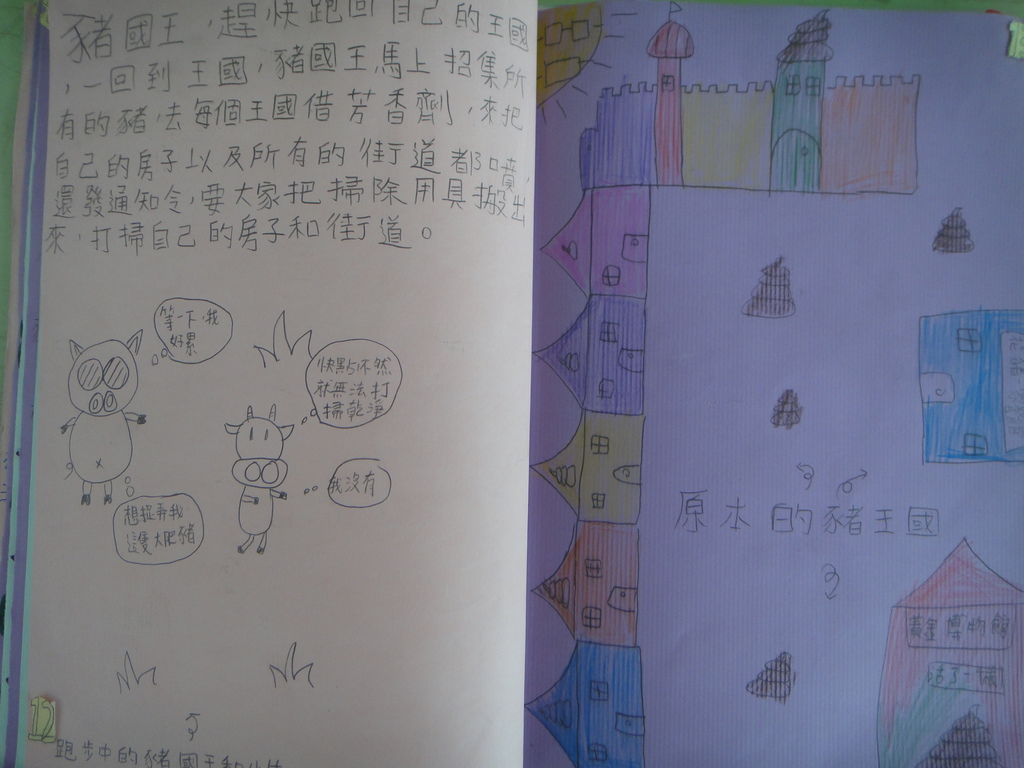 豬國王，趕快跑回自己的王國
，一回到王國，豬國王馬上招集所
有的豬，去每個王國借芳香劑，來把
自己的房子以及所有的街道都噴，
還發通知令，要大家把掃除用具搬出
來，打掃自己的房子和街道。
等一下，我
好累
快點，不然
就無法打
掃乾淨
我沒有
想捉弄我
這隻大肥豬
12
跑步中的豬國王和小
原本的豬王國
黃金博物館